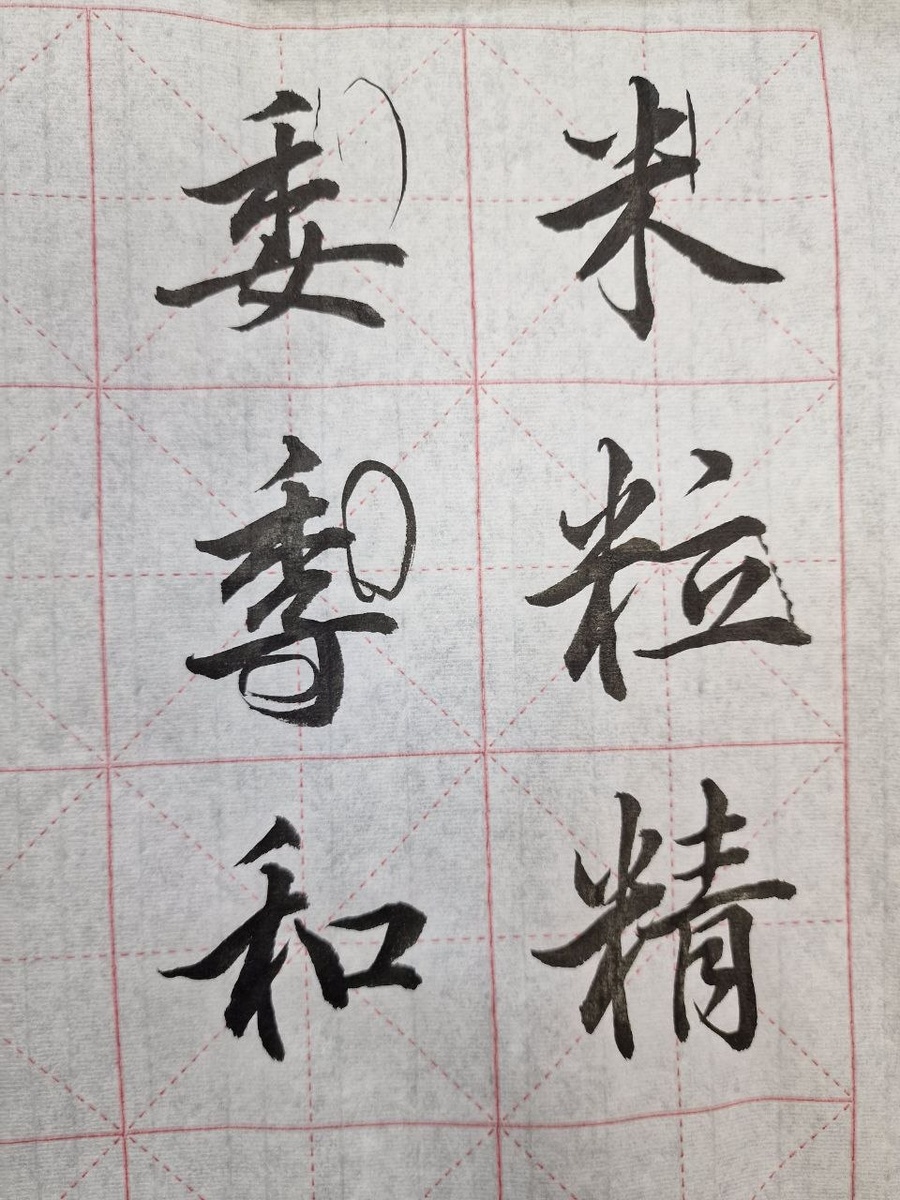 米粒精
委季和